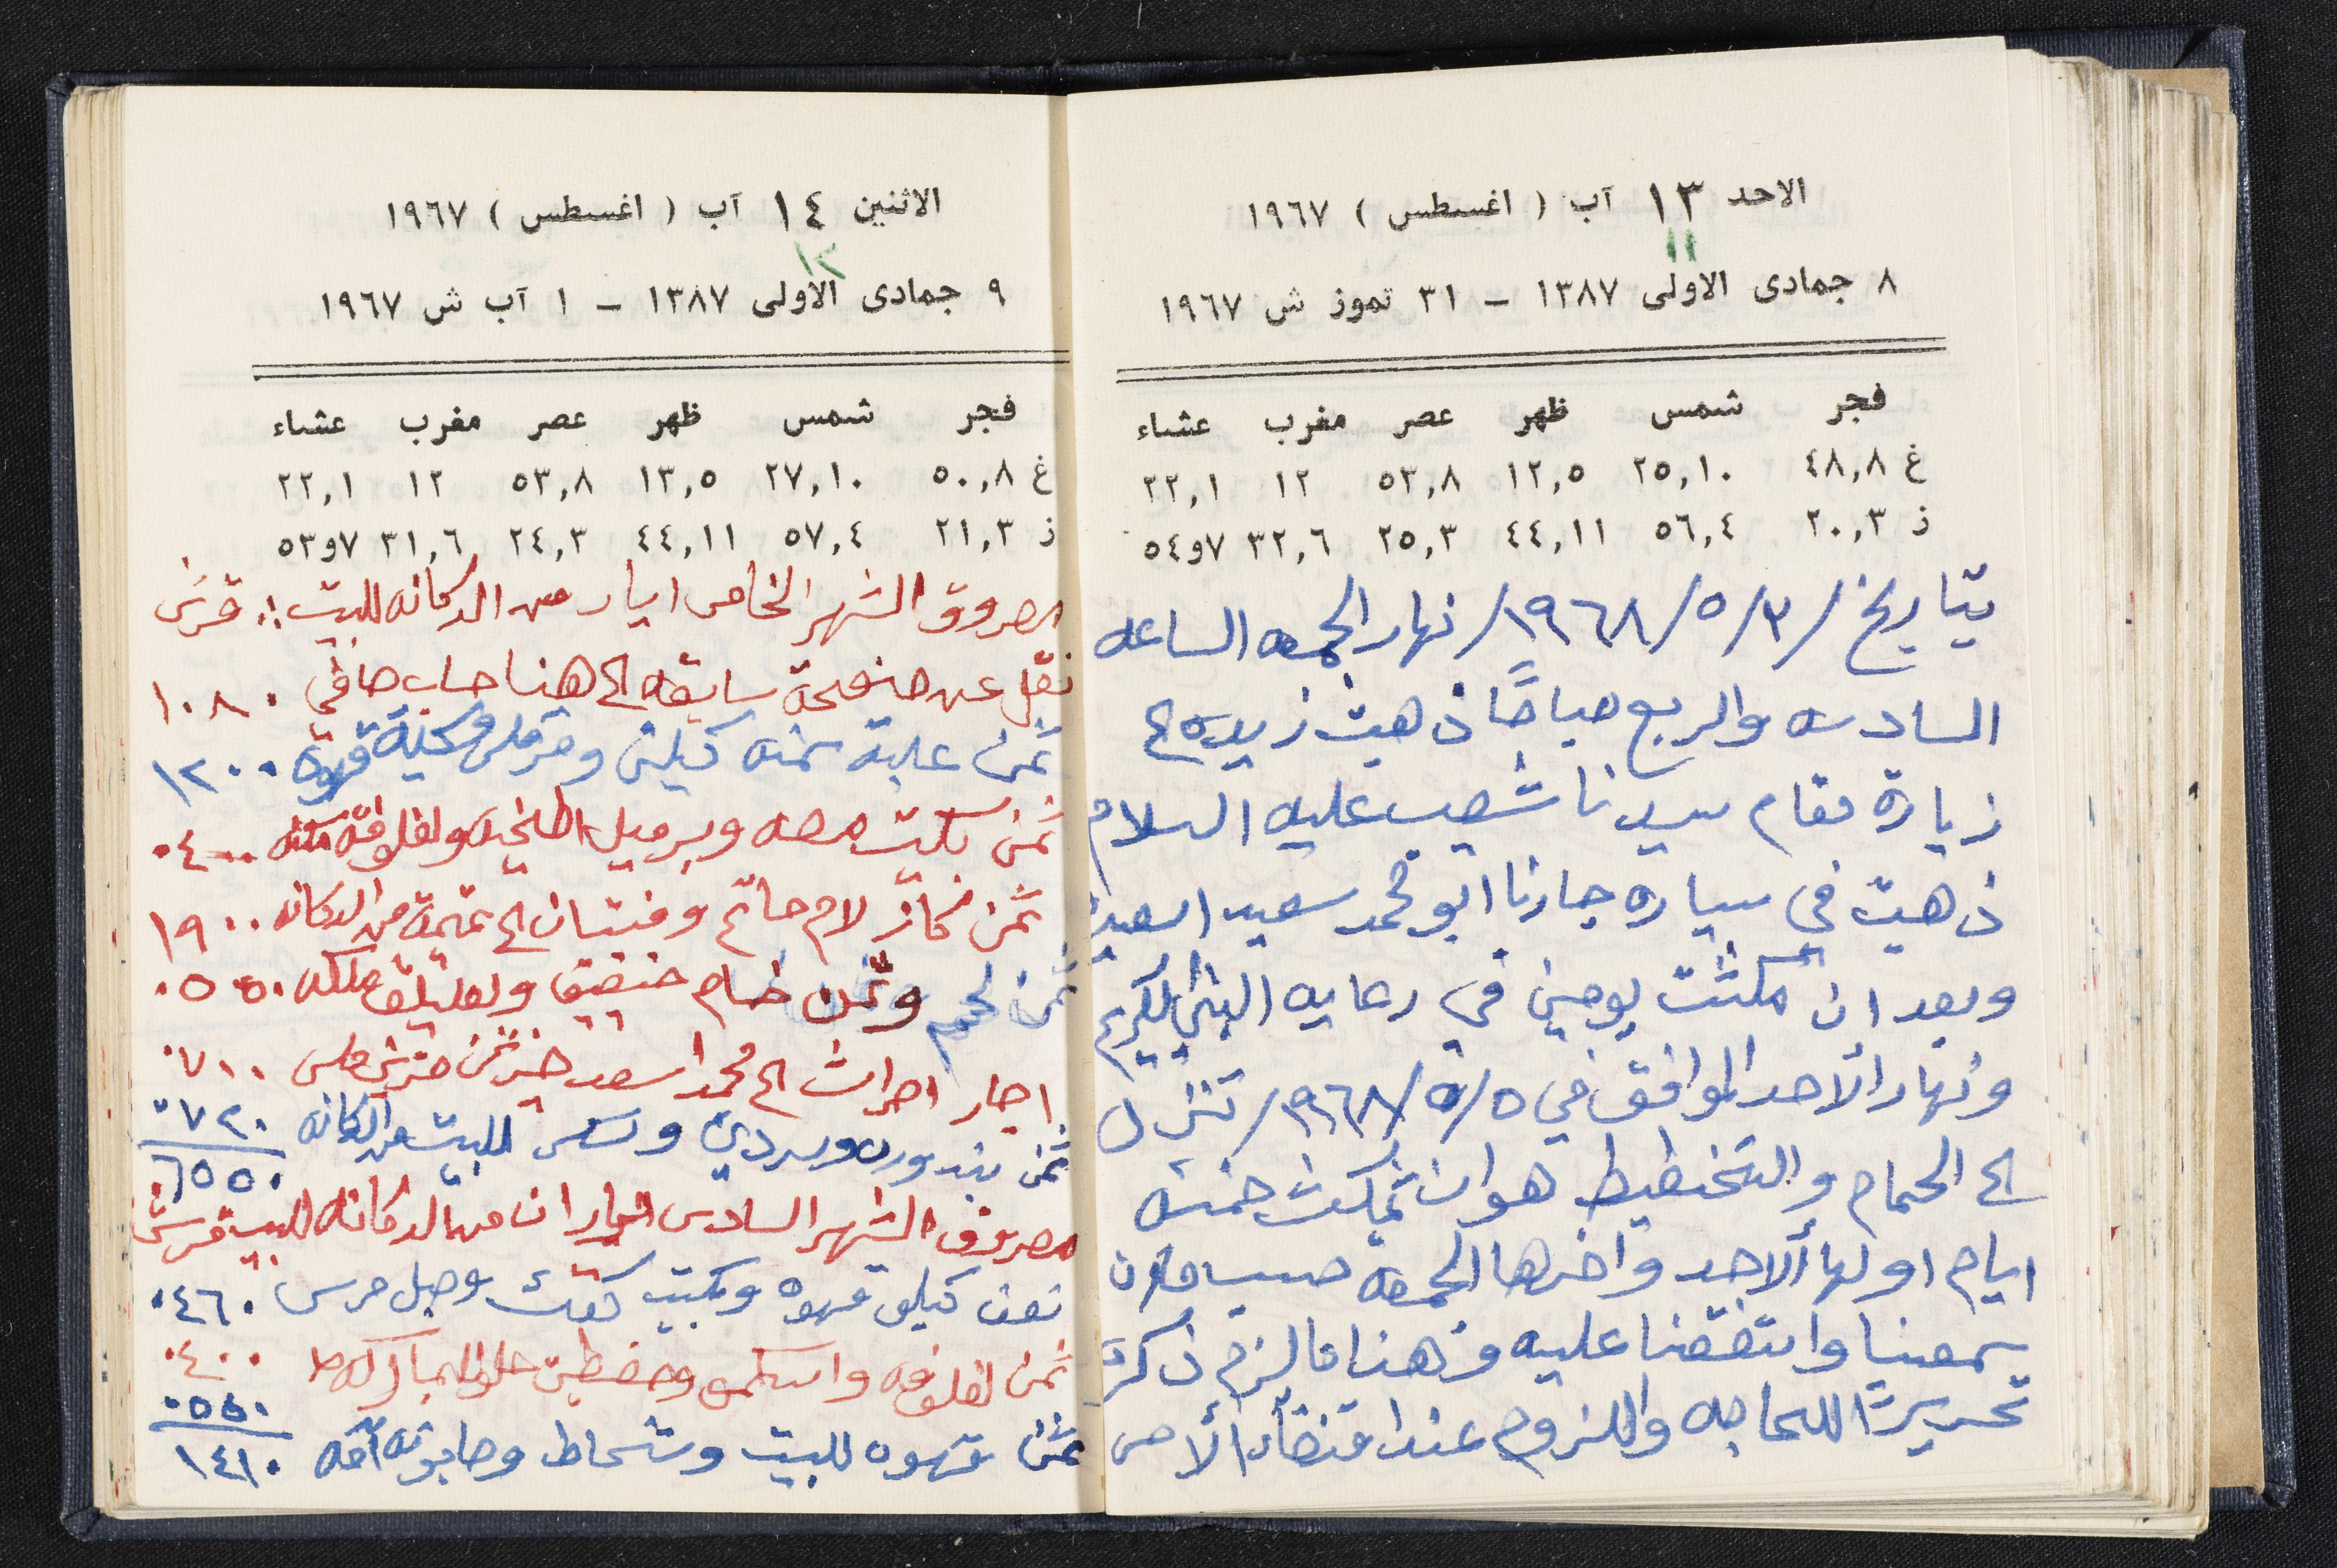 الاحد ١٣ آب ( اغسطس ) ١٩٦٧
١١
٨ جمادى الاولى ١٣٨٧ – ٣١ تموز ش ١٩٦٧
فجر شمس ظهر عصر مغرب عشاء
غ ٤٨,٨ ٢٥,١٠ ١٢,٥ ٥٣,٨ ١٢ ٢٢,١
ذ ٢٠,٣ ٥٦,٤ ٤٤,١١ ٢٥,٣ ٣٢,٦ ٧و٥٤
بتاريخ /٣/ ٥/ ١٩٦٨/ نهار الجمعه الساعه
السادسه والربع صباحًا ذهبت زيده الى
زيارة مقام سيدنا شعيب عليه السلام
ذهبت في سياره جارنا ابو محمد سعيد اسعيد
وبعد ان مكثت يومين في رعايه النبي الكريم
ونهار الأحد الموافق في ٥/ ٥/ ١٩٦٨/ تنزل
الى الحمام والتخطيط هو ان تمكث خمسه
ايام اولها ألاحد واخرها الجمعه حسب ما
سمعنا واتفقنا عليه وهذا ما لزم ذكره
تحريرًا للحاجه واللزوم عند اقتضاء الأمر
الاثنين ١٤ آب ( اغسطس ) ١٩٦٧
١٢
٩ جمادى الاولى ١٣٨٧ – ١ آب ش ١٩٦٧
فجر شمس ظهر عصر مغرب عشاء
غ ٥٠,٨ ٢٧,١٠ ١٣,٥ ٥٣,٨ ١٢ ٢٢,١
ذ ٢١,٣ ٥٧,٤ ٤٤,١١ ٢٤,٣ ٣١,٦ ٧و٥٣
مصروف الشهر الخامس ايار من الدكانه للبيت :. قرش
نقل عن صفحة سابقه الى هنا حساب صافي ١٠٨٠
ثمن علبة سمنه كيلين وقهوه ١٢٠٠
ثمن وبرميل ٠٤٠٠
ثمن لام حاتم وفستان الى من الدكانه ١٩٠٠
ثمن لحم وثمن ٠٥٥٠
اجار احراث الى محمد اسعد ثمن ٠٧١٠
ثمن بندوره وسردين وسكر للبيت من الدكانه ٠٧٢٠
٦٥٥٠
مصروف الشهر السادس حزيران من الدكانه للبيت قرش
نصف كيلو قهوه وبكيت كعك وحبل مرس ٠٤٦٠
ثمن ٠٤٠٠
ثمن قهوه للبيت وشحاط وصابونه ٠٥٥٠
١٤١٠